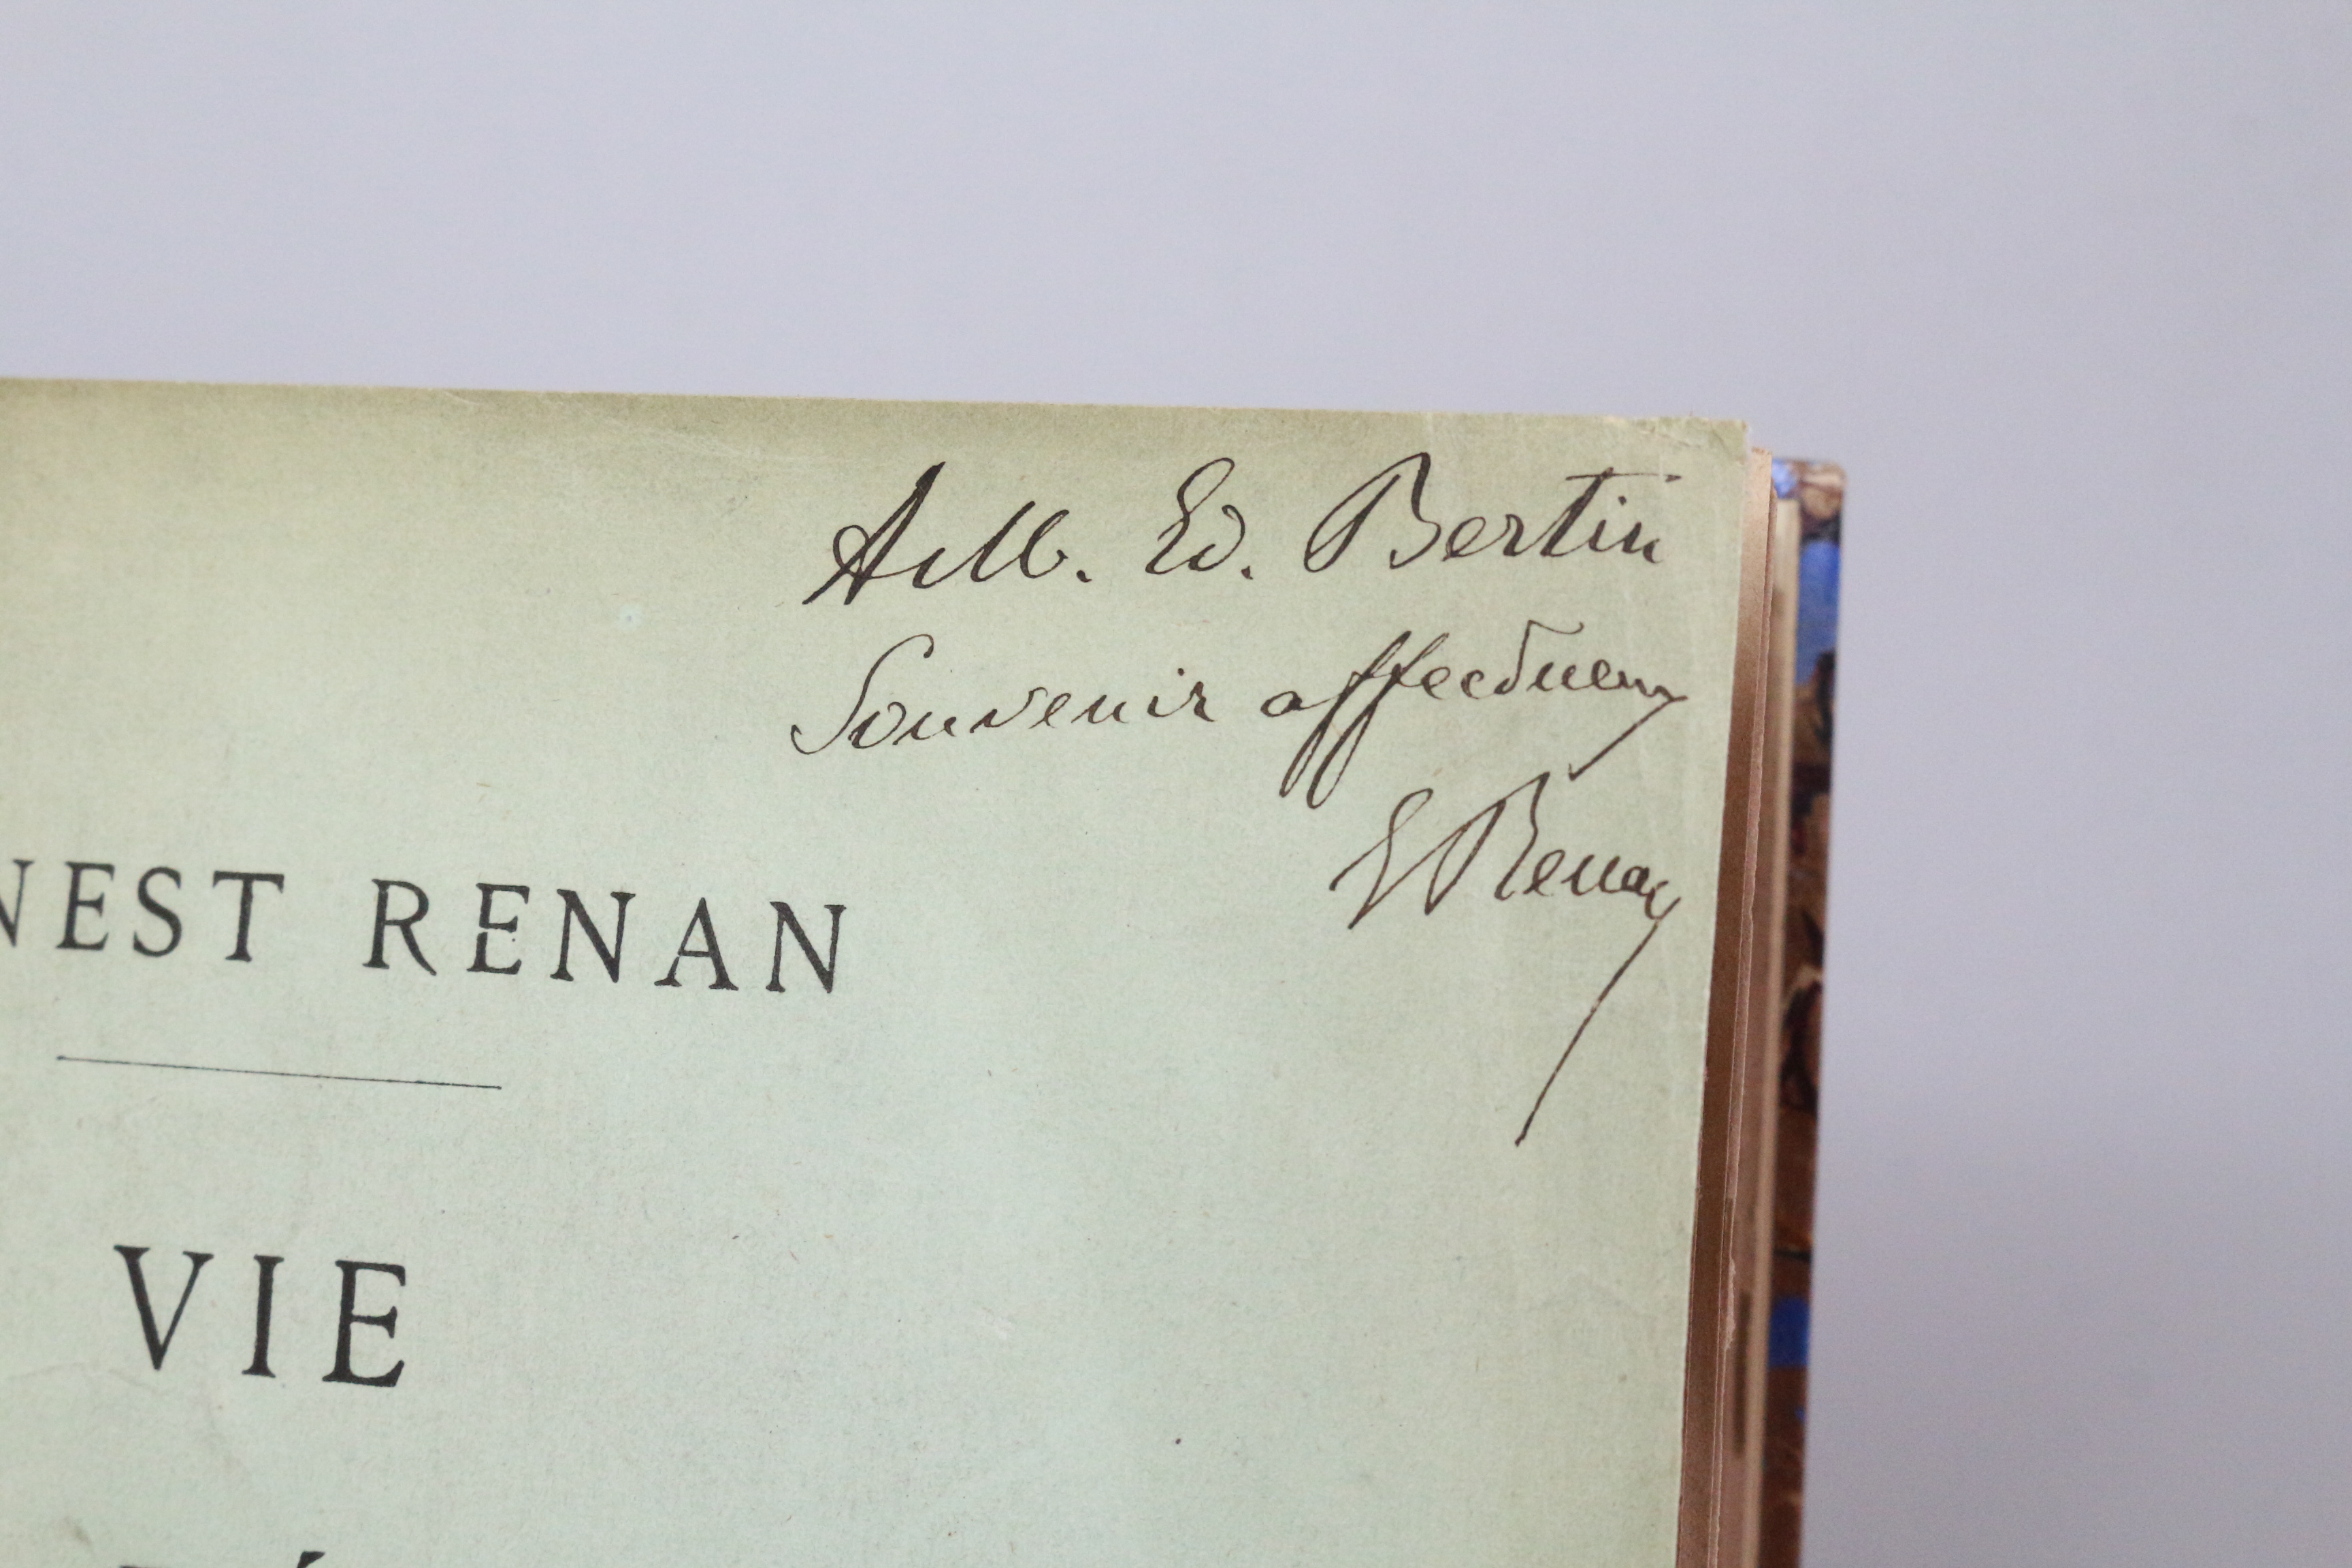 A M. Ed. Bertin
Souvenir affectueux
E Renan
NEST RENAN
VIE